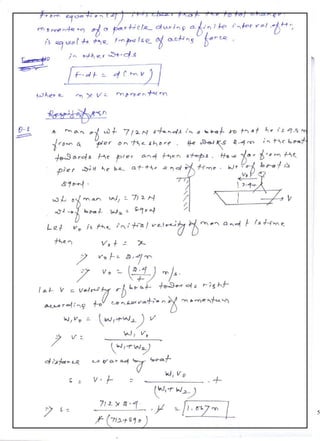 From equation (2) it is clear that the total change
momentum of a particle during a finite interval of time
is equal to the impulse of acting force.
in other words
F·dt = d(mv)
where m × v = momentum
Q-1 A man of wt 712N stands in a boat so that he is 4.5 m
from a pier on the shore. He walks 2.4m in the boat
towards the pier and then stops. How far from the
pier will he be at the end of time. Wt of boat is
890N.
wt of man W₁ = 712N
wt of boat W₂ = 890N
Let V₀ is the initial velocity of man and t is time
then V₀t = x
⇒ V₀t = 2.4m
⇒ V₀ = (2.4/t) m/s.
Let V = velocity of boat towards right
according to conservation of momentum
W₁V₀ = (W₁+W₂) V
⇒ V = W₁V₀ / (W₁+W₂)
distance covered by boat
S = V·t = W₁V₀ / (W₁+W₂) · t
⇒ S = 712 × 2.4 / t (712+890) · t = 1.067m
5